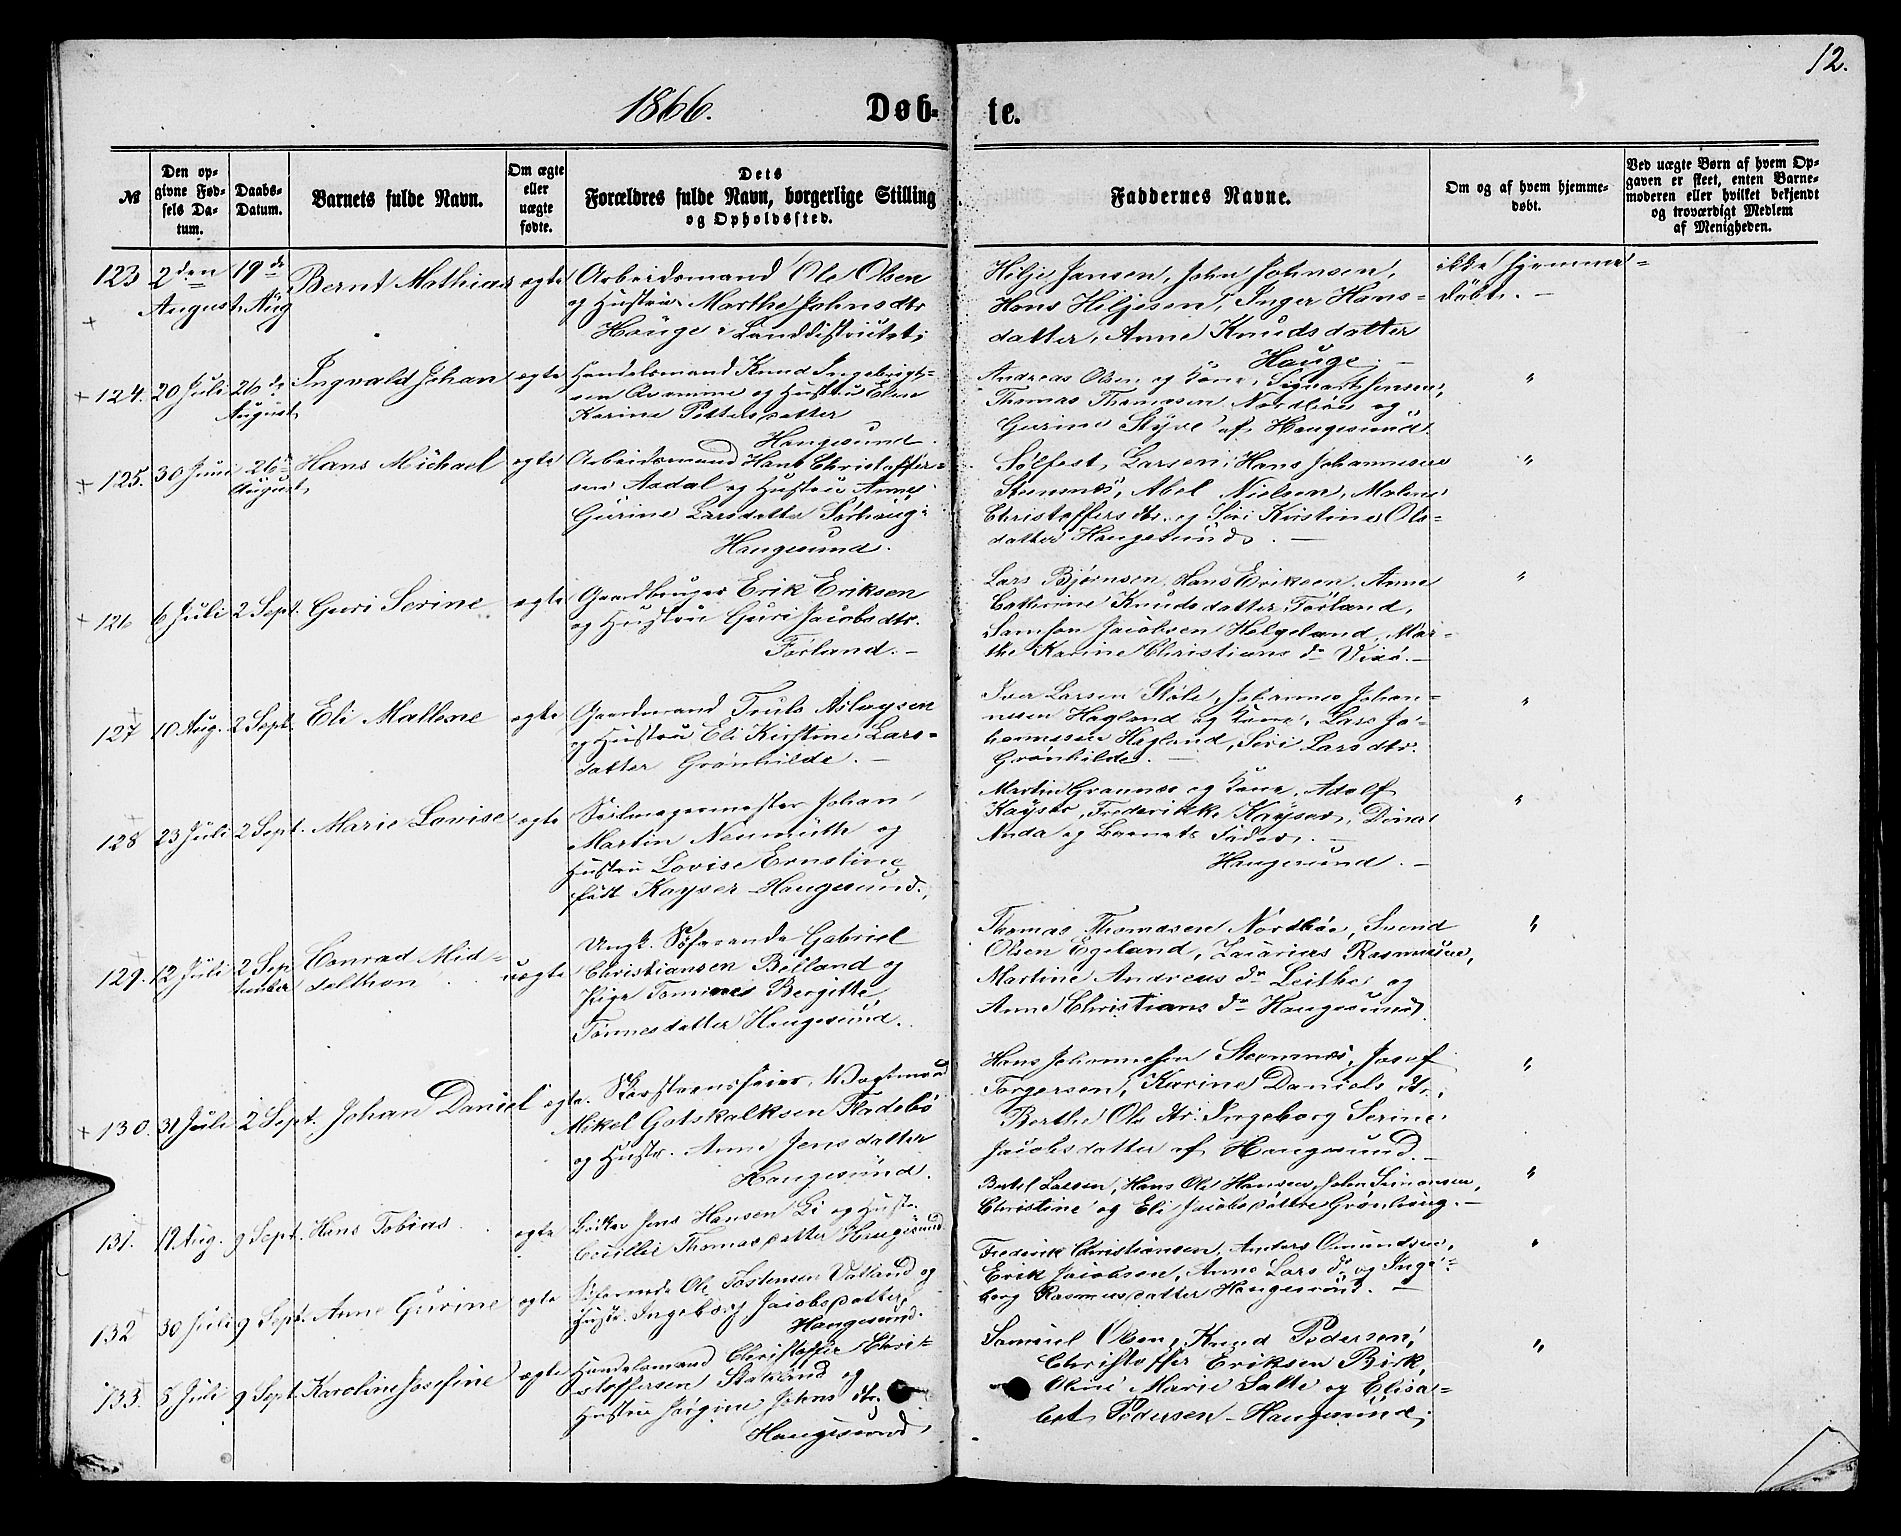 12.
1866. Døb- te.
№
Den opgivne Fødsels Datum.
Daabs-Datum.
Barnets fulde Navn.
Om ægte eller uægte fødte.
Dets Forældres fulde Navn, borgerlige Stilling og Opholdssted.
Faddernes Navne.
Om og af hvem hjemmedøbt.
Ved uægte Børn af hvem Opgaven er skeet, enten Barnemoderen eller hvilket bekjendt og troværdigt Medlem af Menigheden.
123 2den August 19de Aug Bernt Mathias ægte
Arbeidsmand Ole Olsen
og Hustru Marthe Johnsdtr
Hauge i Landdistriktet.
Hilje Jansen, John Johnsen,
Hans Hiljesen, Inger Hans-
datter, Anne Knudsdatter
Hauge. —
ikke hjemme-
døbt. —
+ 124. 20 Juli 26de August Ingvald Johan ægte
Handelsmand Knud Ingebrigt-
sen og Hustru Eline
Karine Pettersdatter
Haugesund.
Andreas Olsen og Kone, Sigvart Jensen,
Thomas Thomasen Nordbøe og
Gurine Styve af Haugesund.
"
+ 125. 30 Juni 26de August Hans Michael ægte
Arbeidsmand Hans Christoffer-
sen Aadal og Hustru Anne
Gurine Larsdatter Sørhaug
Haugesund.
Sølfest Larsen, Hans Johannesen
Stemnes, Abel Nielsen, Malene
Christoffersdtr. og Siri Kirstine Ols-
datter Haugesund. —
"
+ 126 6 Juli 2 Sept. Guri Serine ægte
Gaardbruger Erik Eriksen
og Hustru Guri Jacobsdtr.
Førland. —
Lars Bjørnsen, Hans Eriksen, Anne
Cathrine Knudsdatter Førland,
Samson Jacobsen Helgeland, Mar-
the Karine Christiansdr Vixe. —
"
127 10 Aug. 2 Sept. Eli Mallene ægte
Gaardmand Truls Aslaysen
og Hustru Eli Kirstine Lars-
datter Grønhilde. —
Iver Larsen Støle, Johannes Johan-
nesen Hagland og Kone, Lars Jo-
hannessen Hagland, Siri Larsdtr.
Grønhilde. —
"
128 23 Juli 2 Sept. Marie Louise ægte
Seilmagermester Johan
Martin Neumuth og
Hustru Lovise Ernstine
født Kayser Haugesund.
Martin Grannes og Kone, Adolf
Kayser, Frederikke Kayser, Dina
Anda og Barnets Fader. —
Haugesund. —
"
129. 12 Juli 2 September Conrad Mid-
delthon uægte
Ungk. Søfarende Gabriel
Christiansen Belland og
Pige Tomine Bergitte
Tønnesdatter Haugesund.
Thomas Thomasen Nordbøe, Svend
Olsen Egeland, Zacarias Rasmusen,
Martine Andreasdr Leithe og
Anne Christiansdr Haugesund.
"
+ 130. 31 Juli 2 Sept. Johan Daniel ægte.
Skorsteensfeier, Vægtmand
Mikel Gotskalksen Fladebø
og Hustr. Anne Jensdatter
Haugesund.
Hans Johannesen Stemnes, Josef
Torgersen, Karine Danielsdtr.,
Berthe Olsdtr. Ingeborg Serine
Jacobsdatter af Haugesund. —
"
131. 19 Aug. 9 Sept. Hans Tobias ægte
Jens Hansen Li og Hustr.
Cecilie Thomasdatter Haugesund
Bertel Larsen, Hans Ole Hansen, John Simonsen,
Christine og Eli Jacobsdøttre Grønhaug. —
"
132 30 Juli 9 Sept. Anne Gurine ægte
Søfarende Ole Tostensen Vatland og
Hustr. Ingeborg Jacobsdatter,
Haugesund.
Frederik Christiansen, Anders Omundsen,
Erik Jacobsen, Anne Larsdr og Inge-
borg Rasmusdatter Haugesund. —
"
133. 8 Juli 9 Sept. Karoline Josefine ægte
Handelsmand Christoffer Chri-
stoffersen Stakland og
Hustru Jørgine Johnsdtr.
Haugesund
Samuel Olsen, Knud Pedersen,
Christoffer Eriksen Birk,
Oline Marie Satte og Elisa-
bet Pedersen Haugesund.
"